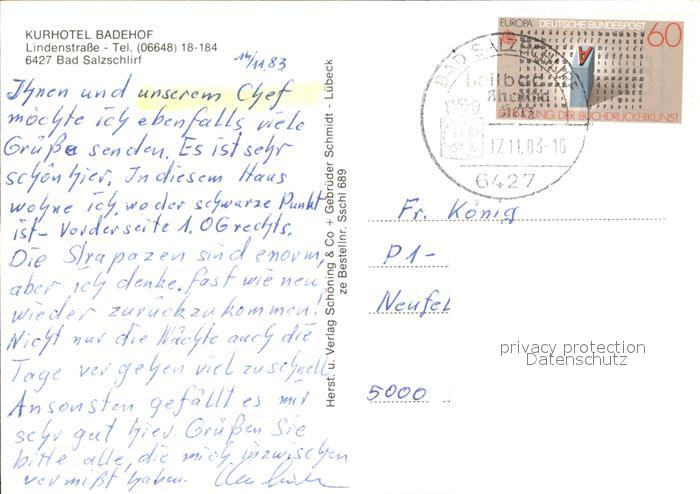 KURHOTEL BADEHOF
Lindenstraße - Tel. (06648) 18-184
6427 Bad Salzschlirf
14/11.83
Ihnen und unserem Chef
möchte ich ebenfalls viele
Grüße senden. Es ist sehr
schön hier. In diesem Haus
wohne ich, wo der schwarze Punkt
ist - Vorderseite 1. OG rechts.
Die Strapazen sind enorm,
aber ich denke, fast wie neu
wieder zurückzukommen!
Nicht nur die Nächte auch die
Tage vergehen viel zu schnell
Ansonsten gefällt es mir
sehr gut hier. Grüßen Sie
bitte alle, die mich inzwischen
vermißt haben.
Herst. u. Verlag Schöning & Co + Gebrüder Schmidt - Lübeck
ze Bestellnr. Sschl 689
EUROPA DEUTSCHE BUNDESPOST 60
DER BUCHDRUCKERKUNST
BAD SALZSCHLIRF
heilbad
Rheuma
Herz
17.11.83-16
6427
Fr. König
P1-
Neufel
5000
privacy protection
Datenschutz